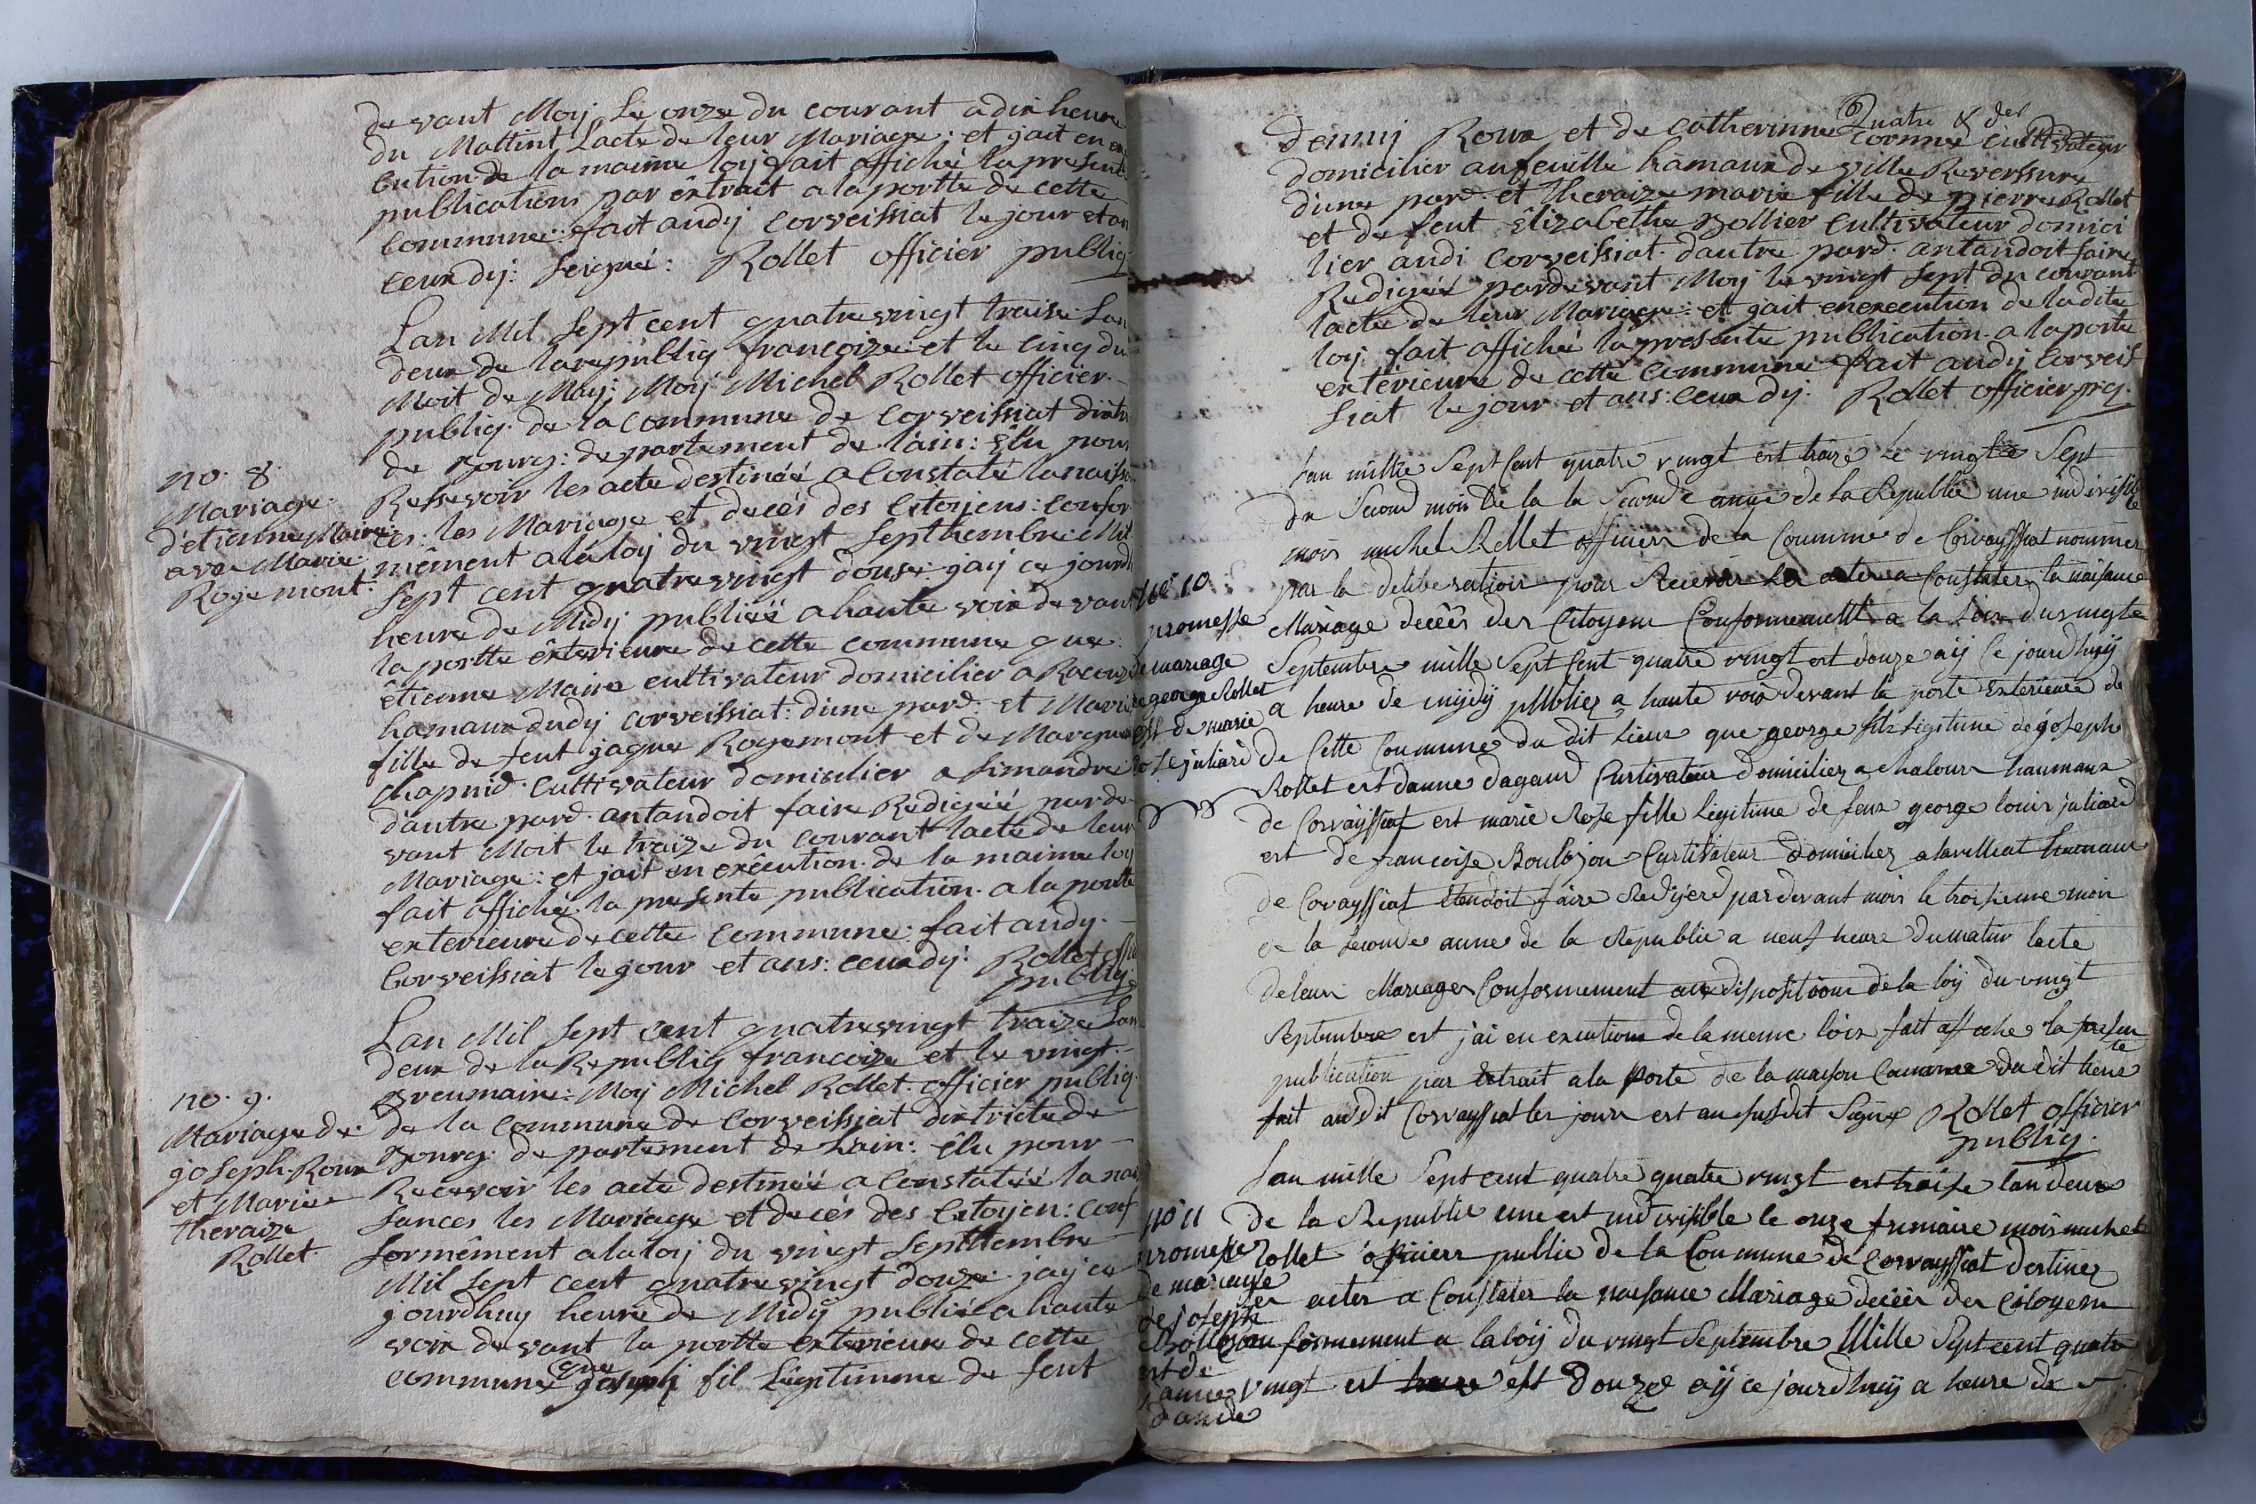 de vant Moy Le onze du courant a dix heure
du Mattint Lacte de leur Mariage: et jait en exe
cution de la maime loy fait affiché la presente
publication par êxtrait a la portte de cette
commune: fait audy Corveissiat le jour et an
ceux dy: Seigné: Rollet officier publiq
Lan Mil Sept cent quatre vingt traise Lan
deux de la republiq françoize et le cinq du
Moit de Mayj Moy Michel Rollet officier
publiq. de la Commune de Corveissiat distri
de Bourg: departement de lain: êlu pour
no. 8.
Mariage
d'etienne Maire
avec Marie
Rogemont.
Ressevoir les acte destinéé a Constaté la naissan
ces: les Mariage et decés des Citoijens: confor
mêment a la loy du vingt Septhembre Mil
Sept cent quatre vingt douse: jaij ce jourd
heure de Midy publiéé a haute voix de vant
la portte êxterieure de cette commune que
êtienne Maire cultivateur domicilier a
hamaux dudy Corveissiat: dune pard: et Marie
fille de feut jaque Rogemont et de Margue
Chapuid. Cultivateur domicilier a Simandre
d'autre pard. antandoit faire Redigéé par de
vant Moit le traize du courant lacte de leur
Mariage: et jait en exêcution de la maime loy
fait affiché la presente publication a la portte
exterieure de cette commune: fait audy
Corveissiat le jour et ans: ceux dy: Rollet offi
publiq
Lan Mil Sept cent quatre vingt traize Lan
deux de la Republiq françoize et le vingt
Breumaire: Moy Michel Rollet officier publiq
no. 9.
Mariage de
joseph Roux
et Marie
theraize
Rollet.
de la Commune de Corveissiat districte de
Bourg. departement de Lain: êlu pour
Recevoir les acte destinéé a Constatéé la nais
sances les Mariage et decés des Citoijen: conf
formêment a la loy du vingt Septtembre
Mil Sept cent quatre vingt douze: jaij ce
jourdhuy heure de Midy publié a haute
voix de vant la portte exterieure de cette
commune que joseph fil Legitimme de feut
Quatre & des
Deniij Roux et de Catherinne Cormié Cultivateur
domicilier au feuille hamaux de ville Reverssure
dune pard. et Theraize marie fille de pierre Rollet
et de feut Êlizabethe Bollier Cultivateur domici
lier audi Corveissiat. dautre pard. antandoit faire
Redigéé pardevant Moy le vingt sept du courant
lacte de leur Mariage: et jait en execution de ladite
loy fait affiché la presente publication a la porte
exterieure de cette commune fait audy Corveis
siat le jour et ans: ceux dy. Rollet officier pq.
Lan mille Sept Cent quatre vingt est traize Le vingte Sept
du Second mois de la la Seconde année de La Republic une indivisible
mois michel Rollet officier de la Commune de Corvayssiat nommer
par la deliberation pour Recevoir Les actes a Constater la naisance
no 10
promesse
de mariage
de george Rollet
est de marie
rose juliard
Mariage decéés des Citoyens Conformement a la Loix du vingte
Septembre mille Sept Cent quatre vingt est douze aij Ce jourdhuij
a heure de mydy plubliez a haute voix devant la porte Exterieure de
de Cette Commune du dit Lieux que george fils Legitime de joseph
Rollet est danne dagaud Curtivateur domiciliez a chalour haumaux
de Corvayssiat est marie Roze fille Legitime de feux george louis juliard
est de francoise Boulezon Curtivateur domiciliez a lavelliat hamaux
de Corvayssiat etendoit faire Redijerd par devant mois le troisieme mois
de la seconde anne de la Republic a neuf heure du matin lacte
de leur Mariages Conformement aux dispositions de la loij du vingt
Septembre est j'ai en execution de la meme loix fait affiche la presen
te
publication par Extrait a la porte de la maison Commune du dit lieux
fait au dit Corvayssiat les jours est an susdit Signe Rollet officier
publiq.
Lan mille Sept Cent quatre quatre vingt est traise lan deux
no 11
promesse
de mariage
de joseph
Boll
est de
janne
dande
de la Republic une est indivisible le onze frimaire mois michel
Rollet officiers public de la Commune de Corvayssiat destinez
es actes a Constater la naisance Mariage decéés des Citoyens
Conformement a la loij du vingt Septembre Mille Sept cent quatre
vingt est est Douzes aij ce jourdhuij a heure de